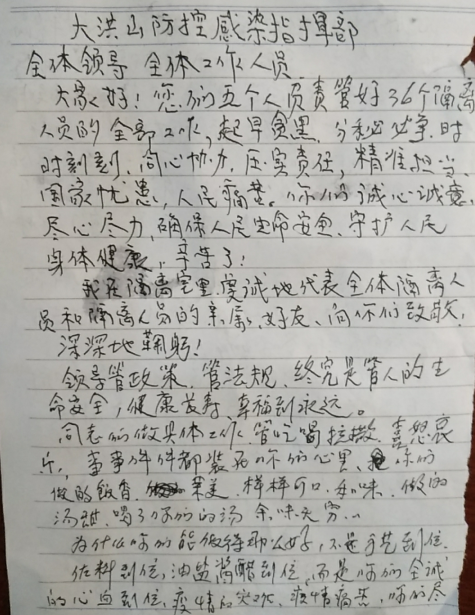 大洪山防控感染指挥部
全体领导 全体工作人员
大家好！您们五个人员责管好36个隔离
人员的全部工作，起早贪黑，分秒必争，时
时刻刻，同心协力，压实责任，精准担当，
国家忧患，人民痛苦。你们诚心诚意，
尽心尽力，确保人民生命安全，守护人民
身体健康，辛苦了！
我在隔离室里虔诚地代表全体隔离人
员和隔离人员的亲属、好友、向你们致敬，
深深地鞠躬！
领导管政策，管法规，终究是管人的生
命安全，健康长寿，幸福到永远。
同志们做具体工作，管吃喝拉撒，喜怒哀
乐，事事件件都装在你们心里，你们
做的饭香，菜美，样样可口，和味，做的
汤甜，喝了你们的汤 余味无穷…
为什么你们能做得那么好，不是手艺到位，
佐料到位，油盐酱醋到位，而是你们全诚
的心血到位，疫情如火，疫情病苦，你们尽